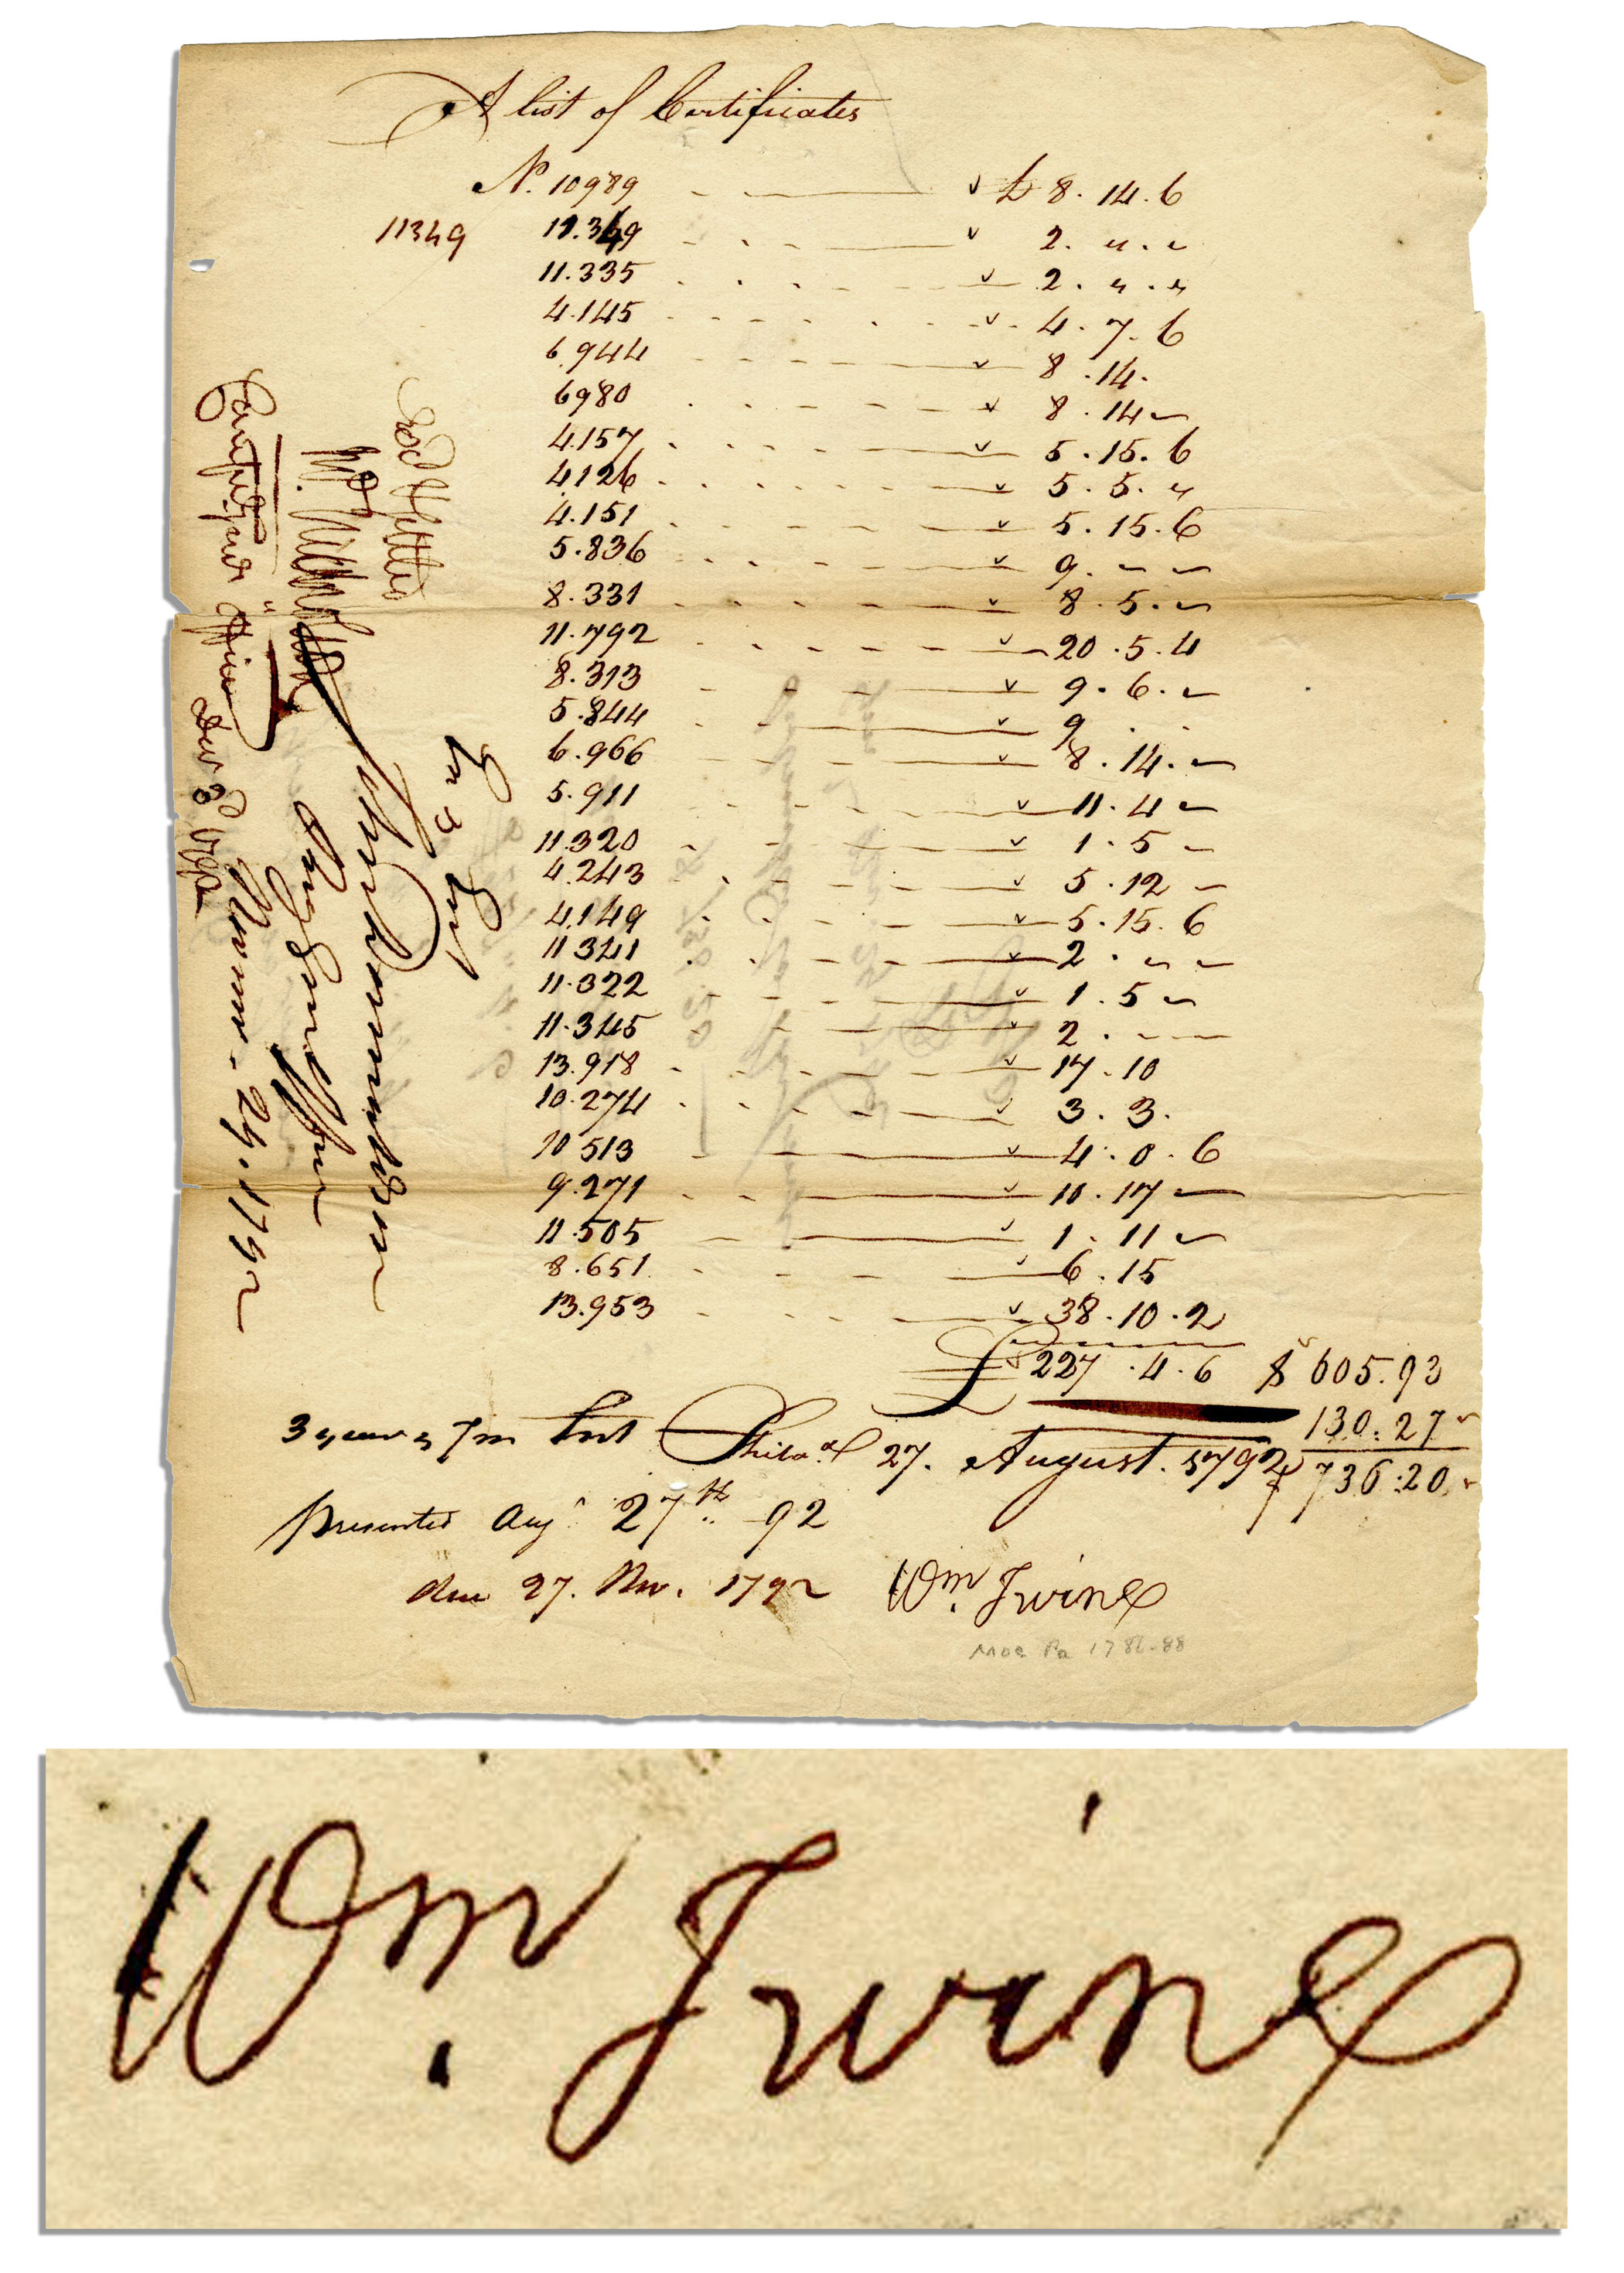 A list of Certificates
No. 10989 £ 8.14.6
11349 11.349 2. " . "
11.335 2. " . "
4.145 4.7.6
6.944 8.14.
6980 8.14 ~
4.157 5.15.6
4126 5.5. "
4.151 5.15.6
5.836 9. ~ ~
8.331 8.5. ~
11.792 20.5.4
8.313 9.6. ~
5.844 9 . .
6.966 8.14. ~
5.911 11.4 ~
11.320 1.5 ~
4.243 5.12 ~
4.149 5.15.6
11341 2 . ~ ~
11.322 1.5 ~
11.345 2 . ~ ~
13.918 17.10
10.274 3.3.
10513 4.0.6
9.271 10.17 ~
11.505 1.11 ~
8.651 6.15
13.953 38.10.2
£ 227.4.6 $ 605.93
130.27
3 years 7m Int Philad 27. August. 1792 $ 736:20
presented Augt 27th 92
due 27. Nov. 1792 Wm. Irvine
Moc Pa 1786-88
Office
29. 1792
Wm. Irvine